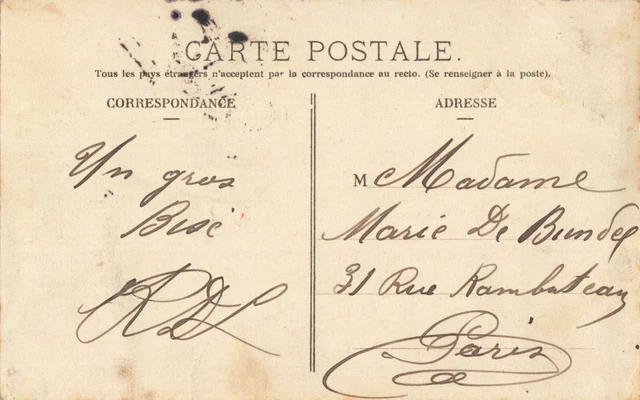 CARTE POSTALE.
Tous les pays étrangers n'acceptent par la correspondance au recto. (Se renseigner à la poste).
CORRESPONDANCE
Un gros
Bisé
RDL
ADRESSE
M Madame
Marie De Bundel
31 Rue Rambuteau
Paris